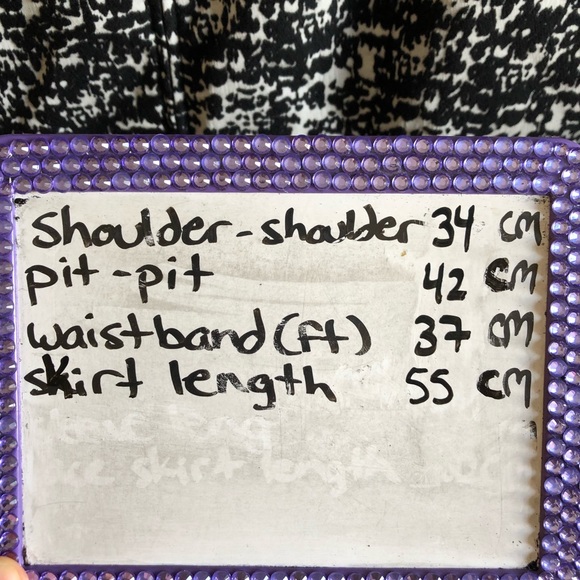 Shoulder-shoulder 34 cm
pit-pit 42 cm
waistband (ft) 37 cm
skirt length 55 cm
skirt length